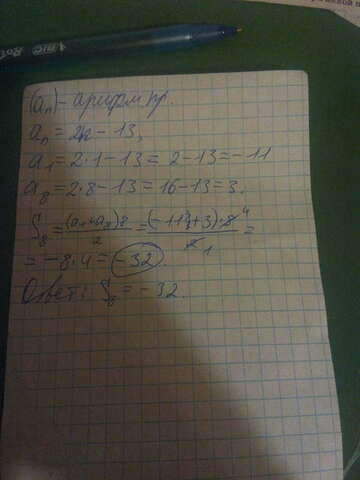 BIC
(aₙ) - арифм. пр.
aₙ = 2n - 13,
a₁ = 2·1 - 13 = 2 - 13 = -11
a₈ = 2·8 - 13 = 16 - 13 = 3.
S₈ = (a₁ + a₈)·8 / 2 = (-11 + 3)·8 4 / 2 1 =
= -8·4 = -32.
Ответ: S₈ = -32.